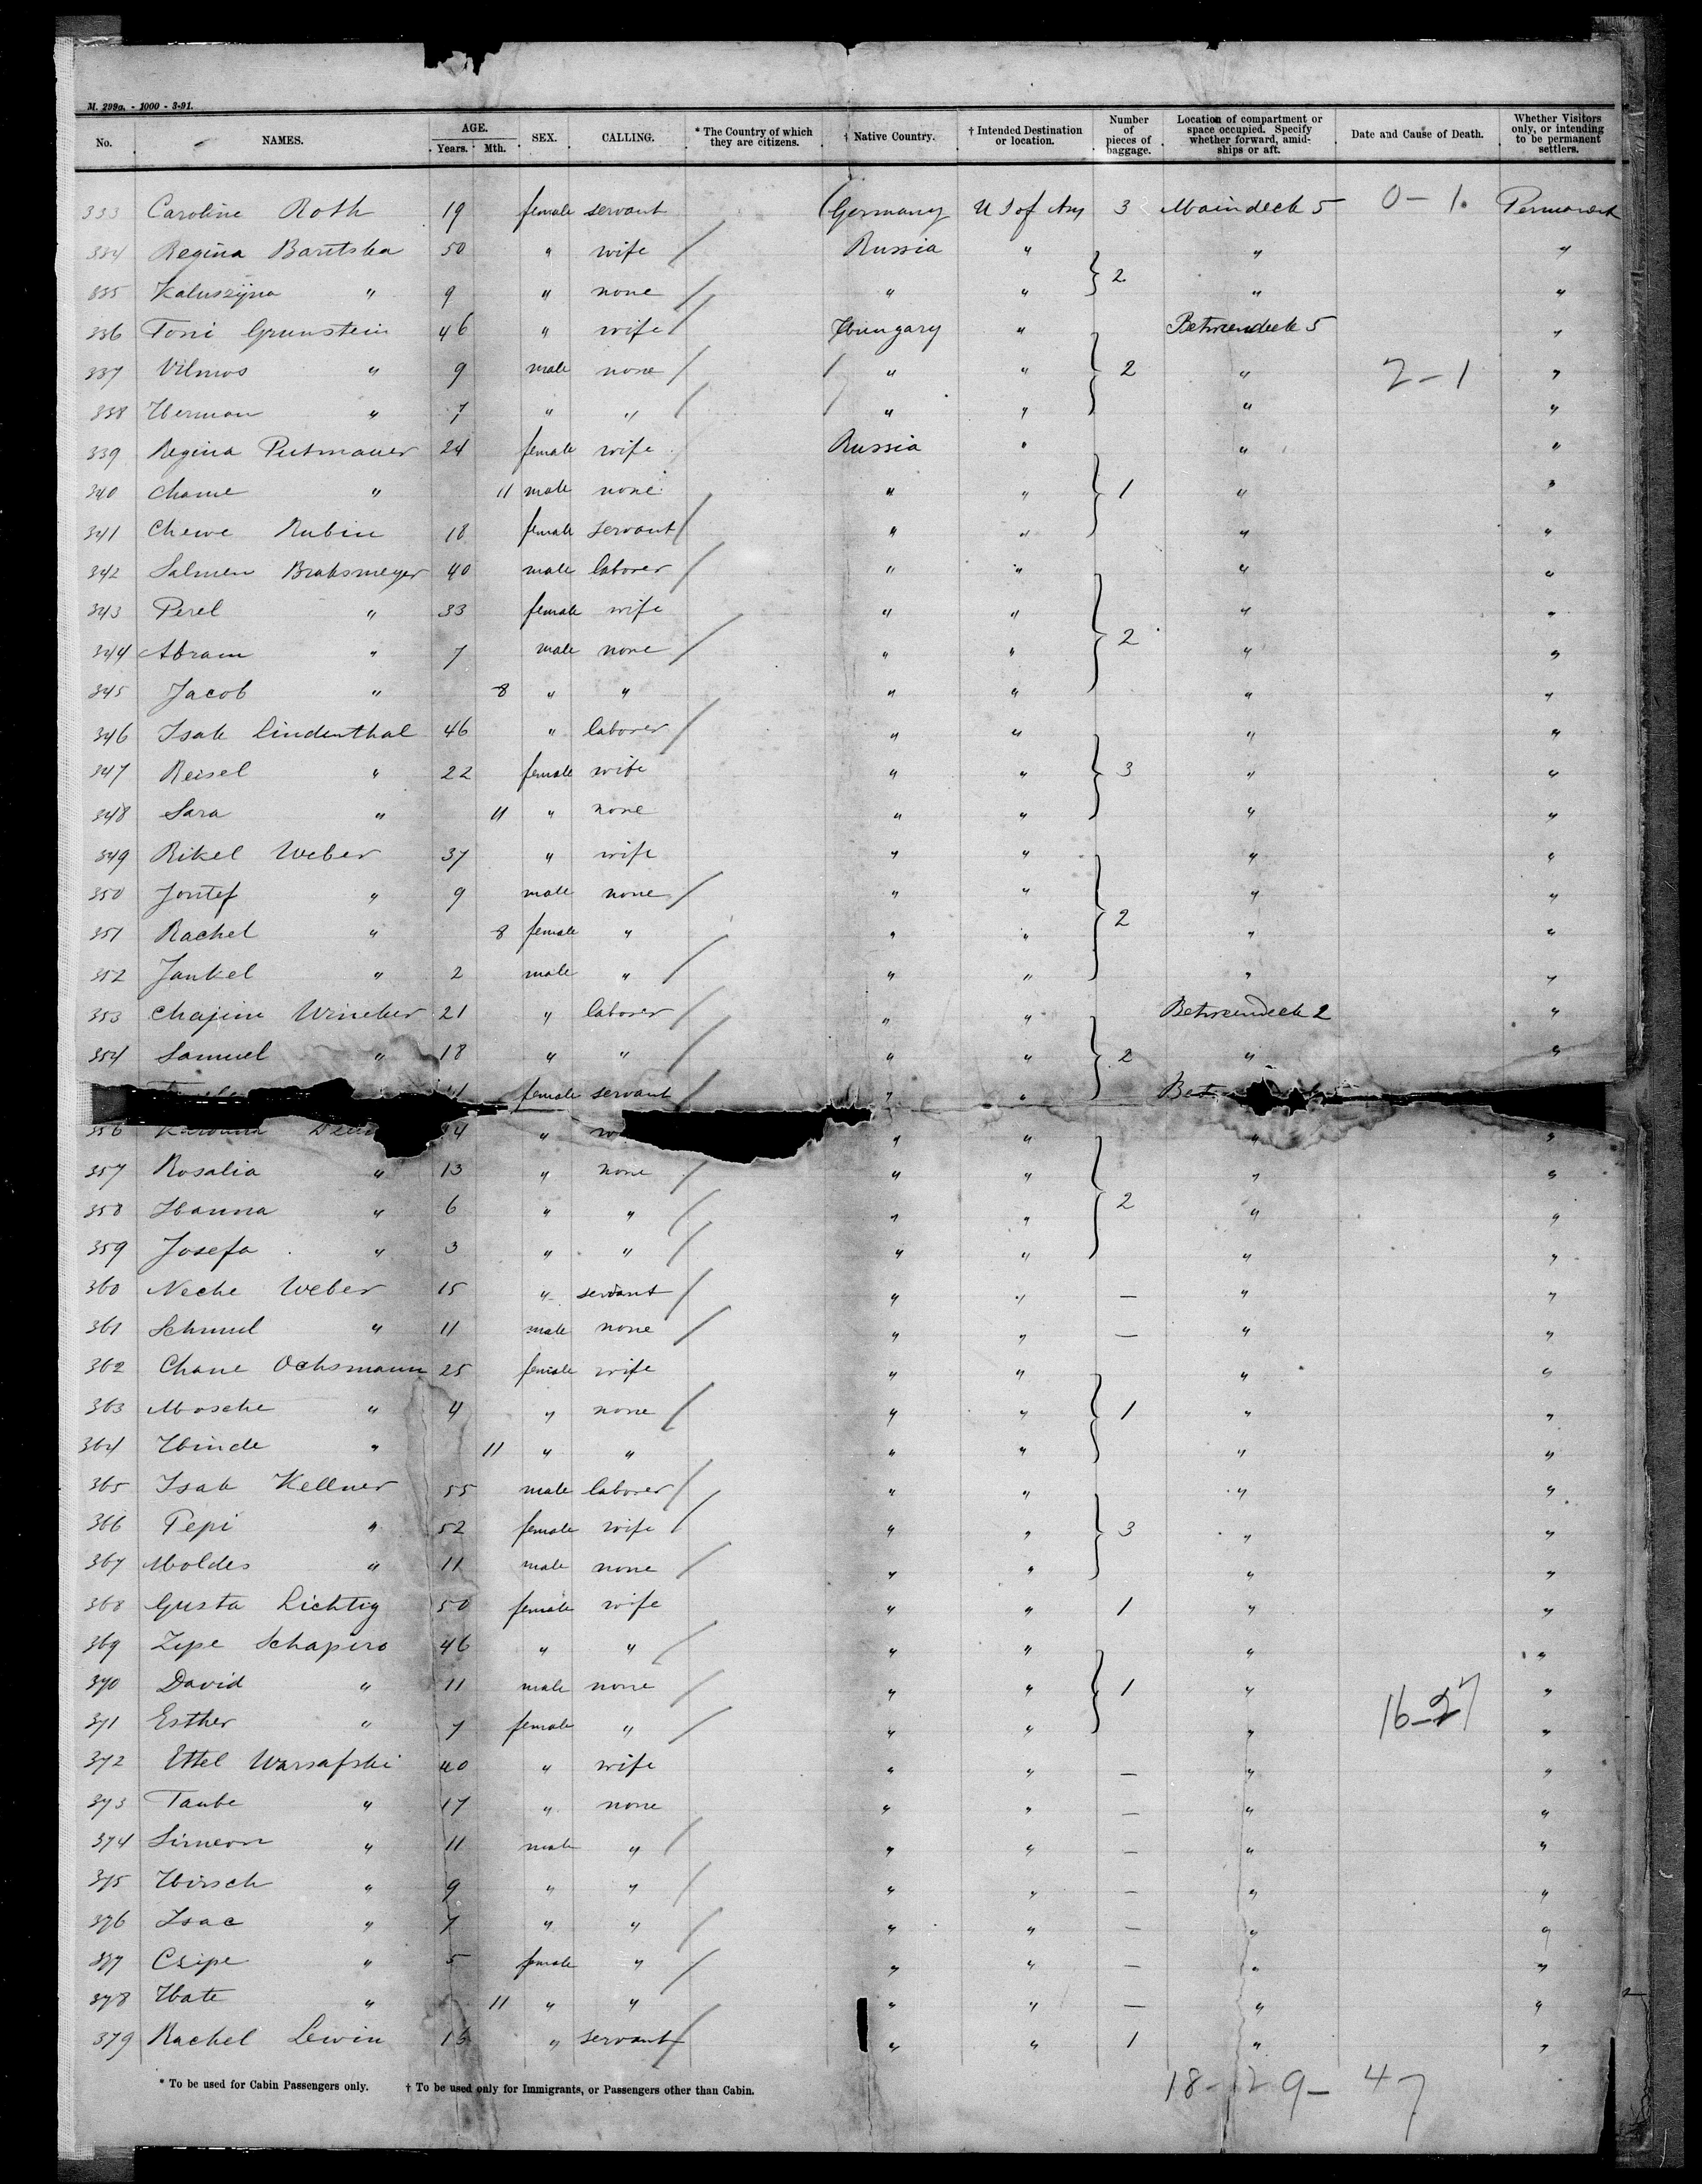 M. 298a. - 1000 - 3-91.
No. NAMES. AGE. Years. Mth. SEX. CALLING. * The Country of which they are citizens. † Native Country. † Intended Destination or location. Number of pieces of baggage. Location of compartment or space occupied. Specify whether forward, amid-ships or aft. Date and Cause of Death. Whether Visitors only, or intending to be permanent settlers.
333 Caroline Roth 19 female servant Germany U S of Am 3 Maindeck 5 0 - 1. Permanent
334 Regina Baritska 50 " wife / Russia " " "
335 Kaluszyna " 9 " none / " " 2 " "
336 Toni Grunstein 46 " wife / Hungary " Betweendeck 5 "
337 Vilmos " 9 male none / " " 2 " 2 - 1 "
338 Herman " 7 " " / " " " "
339 Regina Putmauer 24 female wife Russia " " "
340 Chame " 11 male none " " 1 " "
341 Chewe Rubin 18 female servant / " " " "
342 Salmen Brahsmeyer 40 male laborer / " " " "
343 Perel " 33 female wife " " " "
344 Abram " 7 male none / " " 2 " "
345 Jacob " 8 " " " " " "
346 Isak Lindenthal 46 " laborer / " " " "
347 Reisel " 22 female wife " " 3 " "
348 Sara " 11 " none " " " "
349 Rikel Weber 37 " wife " " " "
350 Jontef " 9 male none / " " " "
351 Rachel " 8 female " " " 2 " "
352 Jankel " 2 male " / " " " "
353 Chajim Wineker 21 " laborer / " " Betweendeck 2 "
354 Samuel " 18 " " / " " 2 " "
female servant / " " Bet
356 " " " " "
357 Rosalia " 13 " none / " " " "
358 Hanna " 6 " " / " " 2 " "
359 Josefa " 3 " " / " " " "
360 Neche Weber 15 " servant / " " — " "
361 Schmul " 11 male none / " " — " "
362 Chane Ochsmann 25 female wife " " " "
363 Mosche " 4 " none / " " 1 " "
364 Hinde " 11 " " " " " "
365 Isak Kellner 55 male laborer / " " " "
366 Pepi " 52 female wife / " " 3 " "
367 Moldes " 11 male none / " " " "
368 Gusta Lichtig 50 female wife " " 1 " "
369 Zipe Schapiro 46 " " / " " " "
370 David " 11 male none / " " 1 " "
371 Esther " 7 female " / " " " 16 - 27 "
372 Ettel Warsafski 40 " wife " " — " "
373 Taube " 17 " none " " — " "
374 Simeon " 11 male " / " " — " "
375 Hirsch " 9 " " / " " — " "
376 Isac " 7 " " / " " — " "
377 Csipe " 5 female " / " " — " "
378 Hate " 11 " " " " — " "
379 Rachel Lewin 16 " servant / " " 1 " "
* To be used for Cabin Passengers only. † To be used only for Immigrants, or Passengers other than Cabin.
18 - 29 - 47